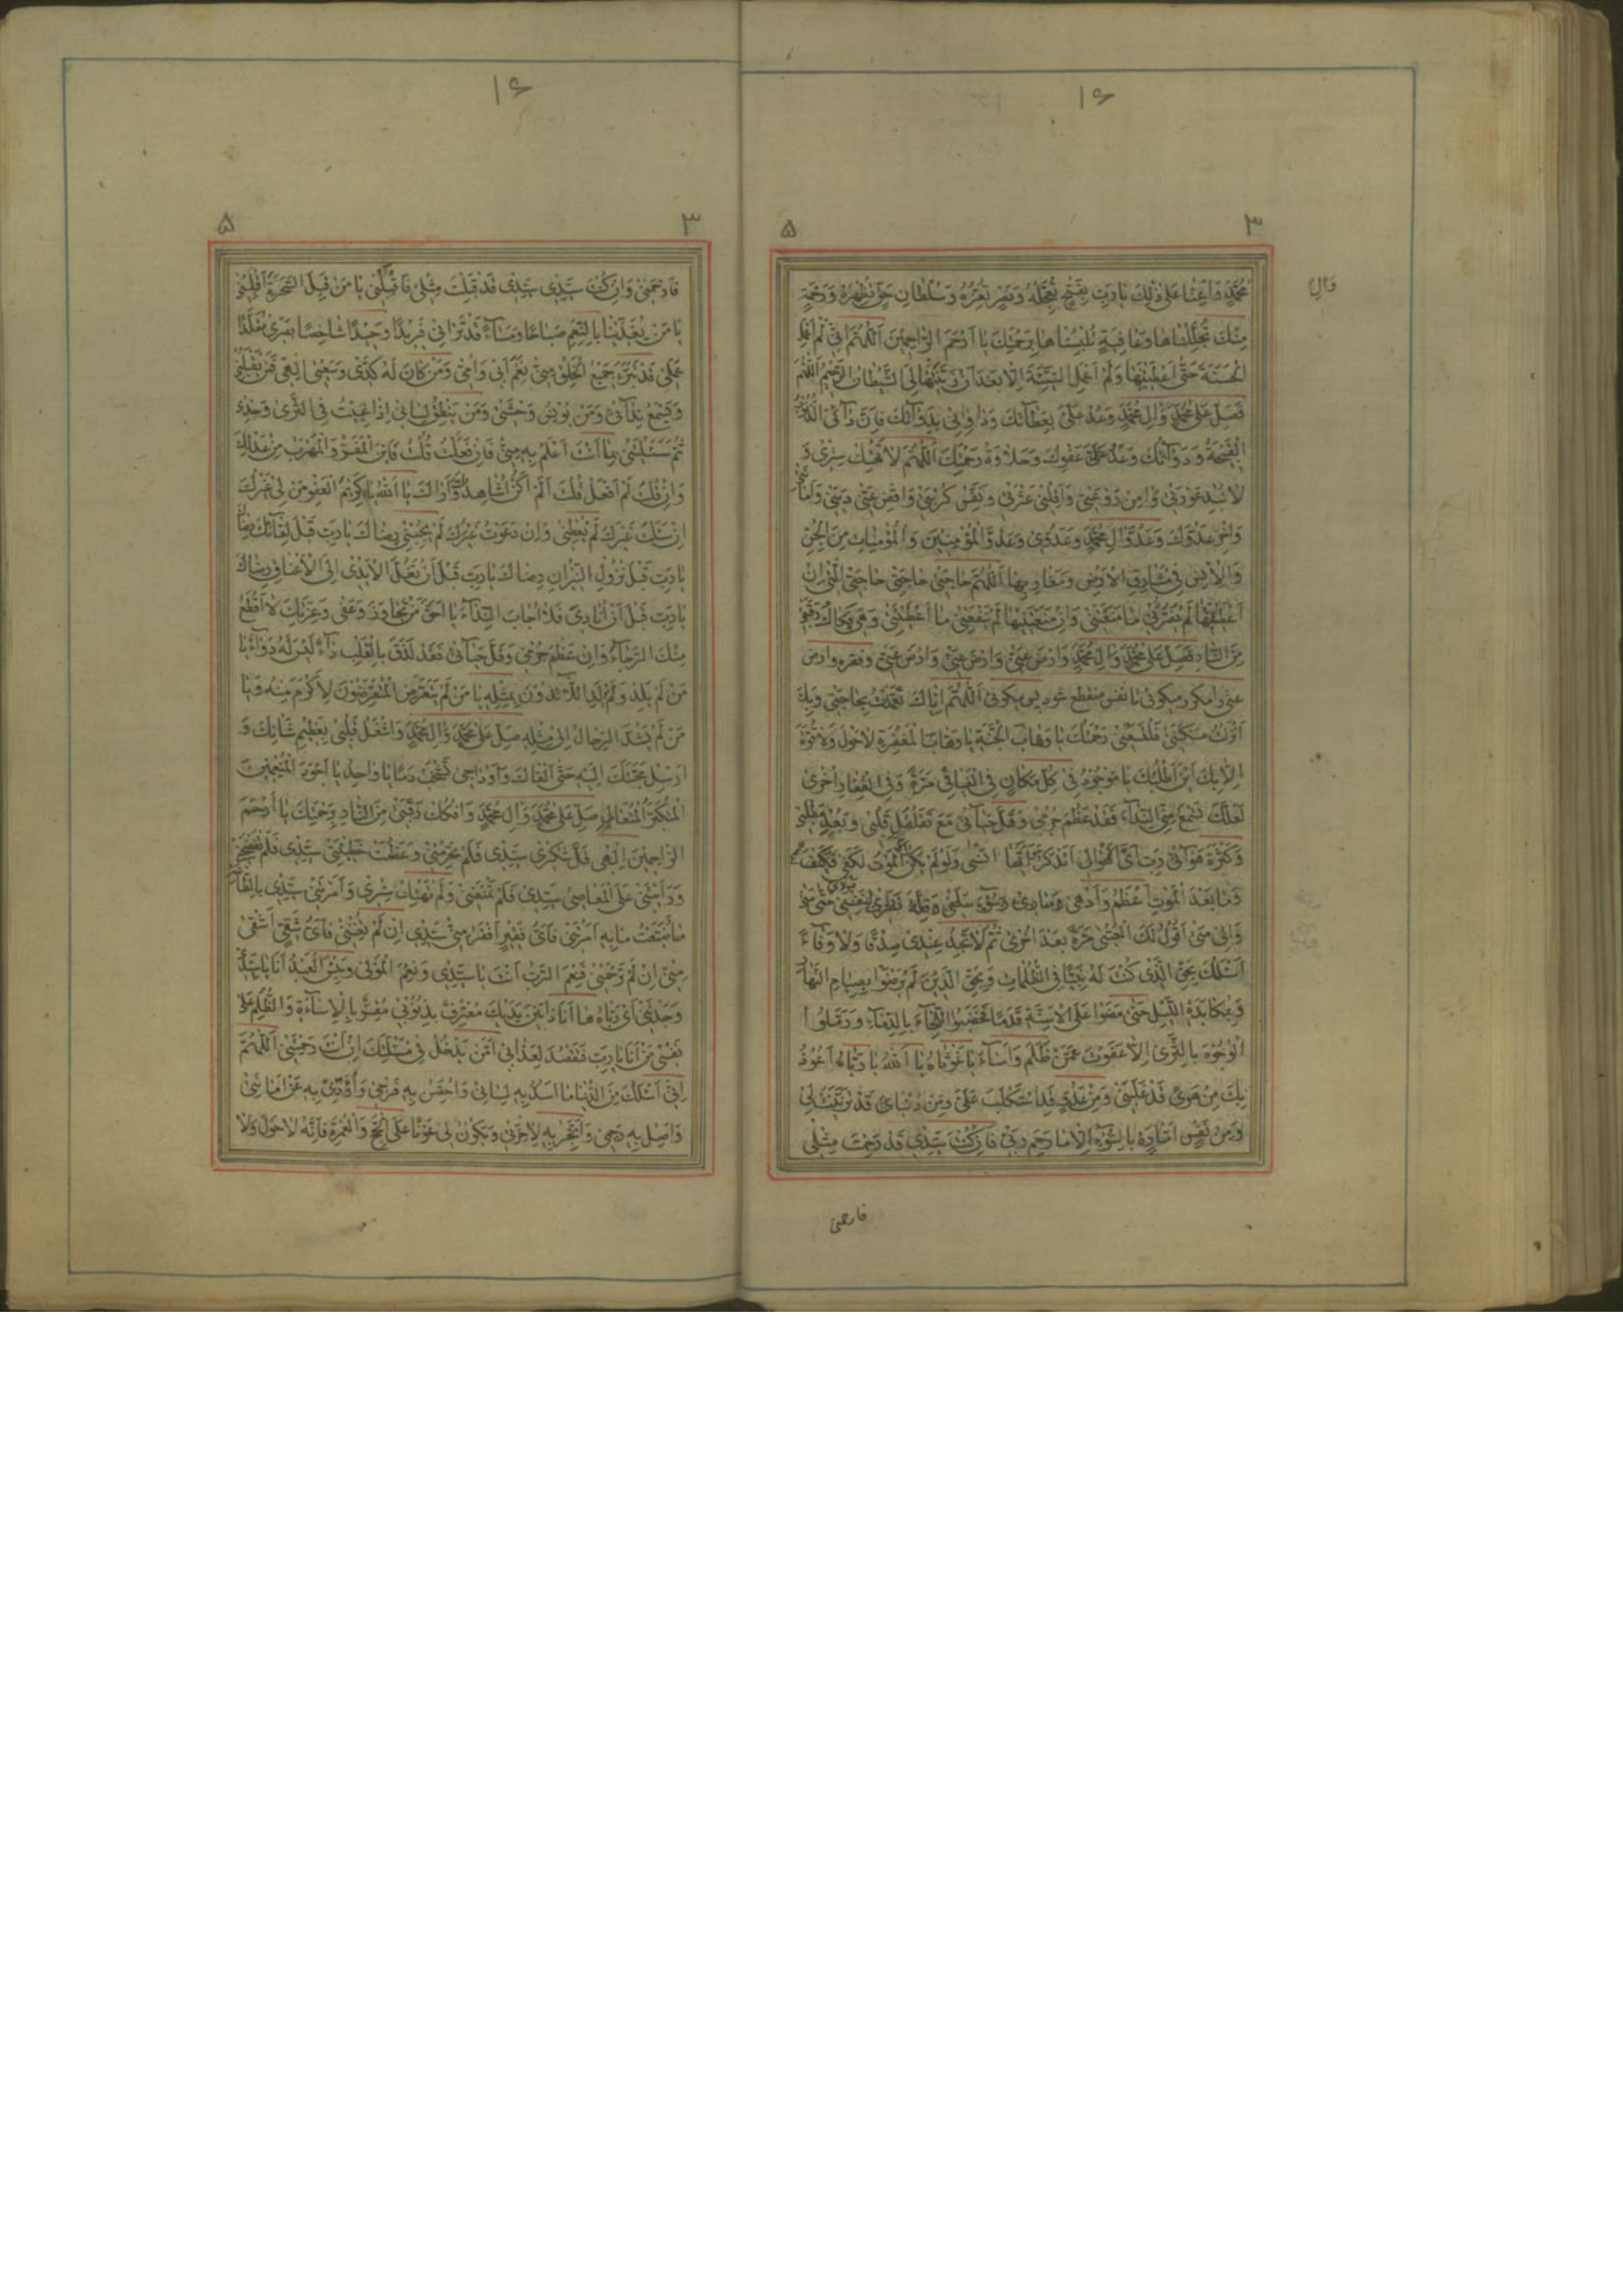 ۱۶
۳ ۵
مُحَمَّدٍ وَاَعِنَّا عَلىٰ ذٰلِكَ يٰا رَبِّ بِفَتْحٍ تُعَجِّلُهُ وَبِنَصْرٍ تُعِزُّهُ وَسُلْطٰانِ حَقٍّ تُظْهِرُهُ وَرَحْمَةٍ
وَالِ
مِنْكَ تُجَلِّلُنٰاهٰا وَعٰافِيَةٍ تُلْبِسُنٰاهٰا بِرَحْمَتِكَ يٰا اَرْحَمَ الرّٰاحِمينَ اَللّٰهُمَّ اِنّى لَمْ اَعْمَلِ
الْحَسَنَةَ حَتّٰى اَعْطَيْتَنيهٰا وَلَمْ اَعْمَلِ السَّيِّئَةَ اِلّٰا بَعْدَ اَنْ زَيَّنَهٰا لِىَ الشَّيْطٰانُ الرَّجيمُ اَللّٰهُمَّ
فَصَلِّ عَلىٰ مُحَمَّدٍ وَاٰلِ مُحَمَّدٍ وَعُدْ عَلَىَّ بِعَطٰائِكَ وَدٰاوِ دٰائى بِدَوٰائِكَ فَاِنَّ دٰائِىَ الذُّنُوبُ
الْقَبيحَةُ وَدَوٰائُكَ وَعْدُ عَفْوِكَ وَحَلٰاوَةُ رَحْمَتِكَ اَللّٰهُمَّ لٰا تَهْتِكْ سِتْرى وَ
لٰا تُبْدِ عَوْرَتى وَاٰمِنْ رَوْعَتى وَاَقِلْنى عَثْرَتى وَنَفِّسْ كُرْبَتى وَاقْضِ عَنّى دَيْنى وَاَمٰانَتى
وَاخْزِ عَدُوَّكَ وَعَدُوَّ اٰلِ مُحَمَّدٍ وَعَدُوّى وَعَدُوَّ الْمُؤْمِنينَ وَالْمُؤْمِنٰاتِ مِنَ الْجِنِّ
وَالْاِنْسِ فى مَشٰارِقِ الْاَرْضِ وَمَغٰارِبِهٰا اَللّٰهُمَّ حٰاجَتى حٰاجَتى حٰاجَتِىَ الَّتى اِنْ
اَعْطَيْتَنيهٰا لَمْ يَضُرَّنى مٰا مَنَعْتَنى وَاِنْ مَنَعْتَنيهٰا لَمْ يَنْفَعْنى مٰا اَعْطَيْتَنى وَهِىَ فَكٰاكُ رَقَبَتى
مِنَ النّٰارِ فَصَلِّ عَلىٰ مُحَمَّدٍ وَاٰلِ مُحَمَّدٍ وَارْضَ عَنّى وَارْضَ عَنّى وَارْضَ عَنّى وفقره وارض
عنى را مكرر ميكوئى تا نفس منقطع شود پس ميگوئى اَللّٰهُمَّ اِيّٰاكَ تَعَمَّدْتُ بِحٰاجَتى وَبِكَ
اَنْزَلْتُ مَسْكَنَتى فَلْتَسَعْنى رَحْمَتُكَ يٰا وَهّٰابَ الْجَنَّةِ يٰا وَهّٰابَ الْمَغْفِرَةِ لٰا حَوْلَ وَلٰا قُوَّةَ
اِلّٰا بِكَ اَيْنَ اَطْلُبُكَ يٰا مَوْجُودُ فى كُلِّ مَكٰانٍ فِى الْفَيٰافى مَرَّةً وَفِى الْقِفٰارِ اُخْرىٰ
لَعَلَّكَ تَسْمَعُ مِنِّى النِّدٰاءَ فَقَدْ عَظُمَ جُرْمى وَقَلَّ حَيٰائى مَعَ تَقَلْقُلِ قَلْبى وَبُعْدِ مَطْلَبى
وَكَثْرَةِ اَهْوٰالى رَبِّ اَىَّ اَهْوٰالى اَتَذَكَّرُ وَاَيَّهٰا اَنْسىٰ وَلَوْ لَمْ يَكُنْ اِلَّا الْمَوْتُ لَكَفىٰ فَكَيْفَ
وَمٰا بَعْدَ الْمَوْتِ اَعْظَمُ وَاَدْهىٰ
وَاِلىٰ مَتىٰ اَقُولُ لَكَ الْعُتْبىٰ مَرَّةً بَعْدَ اُخْرىٰ ثُمَّ لٰا تَجِدُ عِنْدى صِدْقًا وَلٰا وَفٰاءً
اَسْئَلُكَ بِحَقِّ الَّذى كُنْتَ لَهُ اَنيسًا فِى الظُّلُمٰاتِ وَبِحَقِّ الَّذينَ لَمْ يَرْضَوْا بِصِيٰامِ النَّهٰارِ
وَبِمُكٰابَدَةِ اللَّيْلِ حَتّٰى مَضَوْا عَلَى الْاَسِنَّةِ قُدُمًا فَخَضَبُوا اللِّحٰاءَ بِالدِّمٰاءِ وَرَمَّلُوا
الْوُجُوهَ بِالثَّرىٰ اِلّٰا عَفَوْتَ عَمَّنْ ظَلَمَ وَاَسٰاءَ يٰا غَوْثٰاهُ يٰا اَللّٰهُ يٰا رَبّٰاهُ اَعُوذُ
بِكَ مِنْ هَوىً قَدْ غَلَبَنى وَمِنْ عَدُوٍّ قَدِ اسْتَكْلَبَ عَلَىَّ وَمِنْ دُنْيٰاىَ قَدْ تَزَيَّنَتْ لى
وَمِنْ نَفْسٍ اَمّٰارَةٍ بِالسُّوءِ اِلّٰا مٰا رَحِمَ رَبّى فَاِنْ كُنْتَ سَيِّدى قَدْ رَحِمْتَ مِثْلى
فارحمنى
۱۶
۳ ۵
فَارْحَمْنى وَاِنْ كُنْتَ سَيِّدى سَيِّدى قَدْ قَبِلْتَ مِثْلى فَاقْبَلْنى يٰا مَنْ قَبِلَ السَّحَرَةَ اقْبَلْنى
يٰا مَنْ يُغَذّينٰا بِالنِّعَمِ صَبٰاحًا وَمَسٰاءً قَدْ تَرٰانى فَريدًا وَحيدًا شٰاخِصًا بَصَرى مُقَلَّدًا
عَمَلى قَدْ تَبَرَّءَ جَميعُ الْخَلْقِ مِنّى نَعَمْ اَبى وَاُمّى وَمَنْ كٰانَ لَهُ كَدّى وَسَعْيى اِلٰهى فَمَنْ يَقْبَلُنى
وَيَسْمَعُ نِدٰائى وَمَنْ يُونِسُ وَحْشَتى وَمَنْ يَنْطِقُ لِسٰانى اِذٰا غُيِّبْتُ فِى الثَّرىٰ وَحْدى
ثُمَّ سَئَلْتَنى بِمٰا اَنْتَ اَعْلَمُ بِهِ مِنّى فَاِنْ فَعَلْتُ قُلْتُ فَاَيْنَ الْمَفَرُّ وَالْمَهْرَبُ مِنْ عَدْلِكَ
وَاِنْ قُلْتُ لَمْ اَفْعَلْ قُلْتَ اَلَمْ اَكُنْ اُشٰاهِدُكَ وَاَرٰاكَ يٰا اَللّٰهُ يٰا كَريمَ الْعَفْوِ مَنْ لى غَيْرُكَ
اِنْ سَئَلْتُ غَيْرَكَ لَمْ يُعْطِنى وَاِنْ دَعَوْتُ غَيْرَكَ لَمْ يُجِبْنى رِضٰاكَ يٰا رَبِّ قَبْلَ لِقٰائِكَ رِضٰاكَ
يٰا رَبِّ قَبْلَ نُزُولِ النّيرٰانِ رِضٰاكَ يٰا رَبِّ قَبْلَ اَنْ تُغَلَّ الْاَيْدى اِلَى الْاَعْنٰاقِ رِضٰاكَ
يٰا رَبِّ قَبْلَ اَنْ اُنٰادِىَ فَلٰا اُجٰابَ النِّدٰاءَ يٰا اَحَقَّ مَنْ تَجٰاوَزَ وَعَفىٰ وَعِزَّتِكَ لٰا اَقْطَعُ
مِنْكَ الرَّجٰاءَ وَاِنْ عَظُمَ جُرْمى وَقَلَّ حَيٰائى فَقَدْ لَزِقَ بِالْقَلْبِ دٰاءٌ لَيْسَ لَهُ دَوٰاءٌ يٰا
مَنْ لَمْ يَلُذِ اللّٰائِذُونَ بِمِثْلِهِ يٰا مَنْ لَمْ يَتَعَرَّضِ الْمُتَعَرِّضُونَ لِاَكْرَمَ مِنْهُ وَيٰا
مَنْ لَمْ يُشَدَّ الرِّحٰالُ اِلىٰ مِثْلِهِ صَلِّ عَلىٰ مُحَمَّدٍ وَاٰلِ مُحَمَّدٍ وَاشْغَلْ قَلْبى بِعَظيمِ شَاْنِكَ وَ
اَرْسِلْ مَحَبَّتَكَ اِلَيْهِ حَتّٰى اَلْقٰاكَ وَاَوْدٰاجى تَشْخَبُ دَمًا يٰا وٰاحِدُ يٰا اَجْوَدَ الْمُنْعِمينَ
الْمُتَكَبِّرُ الْمُتَعٰالِ صَلِّ عَلىٰ مُحَمَّدٍ وَاٰلِ مُحَمَّدٍ وَافْكُكْ رَقَبَتى مِنَ النّٰارِ بِرَحْمَتِكَ يٰا اَرْحَمَ
الرّٰاحِمينَ اِلٰهى قَلَّ شُكْرى سَيِّدى فَلَمْ تَحْرِمْنى وَعَظُمَتْ خَطيئَتى سَيِّدى فَلَمْ تَفْضَحْنى
وَرَاَيْتَنى عَلَى الْمَعٰاصى سَيِّدى فَلَمْ تَمْنَعْنى وَلَمْ تَهْتِكْ سِتْرى وَاَمَرْتَنى سَيِّدى بِالطّٰاعَةِ
فَضَيَّعْتُ مٰا بِهِ اَمَرْتَنى فَاَىُّ فَقيرٍ اَفْقَرُ مِنّى سَيِّدى اِنْ لَمْ تُغْنِنى فَاَىُّ شَقِىٍّ اَشْقىٰ
مِنّى اِنْ لَمْ تَرْحَمْنى فَنِعْمَ الرَّبُّ اَنْتَ يٰا سَيِّدى وَنِعْمَ الْمَوْلىٰ وَبِئْسَ الْعَبْدُ اَنَا يٰا سَيِّدى
وَجَدْتَنى اَىْ رَبّٰاهُ هٰا اَنَا ذٰا بَيْنَ يَدَيْكَ مُعْتَرِفٌ بِذُنُوبى مُقِرٌّ بِالْاِسٰاءَةِ وَالظُّلْمِ عَلىٰ
نَفْسى مَنْ اَنَا يٰا رَبِّ فَتَقْصُدَ لِعَذٰابى اَمَّنْ يَدْخُلُ فى مَسْئَلَتِكَ اِنْ اَنْتَ رَحِمْتَنى اَللّٰهُمَّ
اِنّى اَسْئَلُكَ مِنَ الدُّنْيٰا مٰا اَسُدُّ بِهِ لِسٰانى وَاُحْصِنُ بِهِ فَرْجى وَاُؤَدّى بِهِ عَنْ اَمٰانَتى
وَاَصِلُ بِهِ رَحِمى وَاَتَّجِرُ بِهِ لِاٰخِرَتى وَيَكُونُ لى عَوْنًا عَلَى الْحَجِّ وَالْعُمْرَةِ فَاِنَّهُ لٰا حَوْلَ وَلٰا